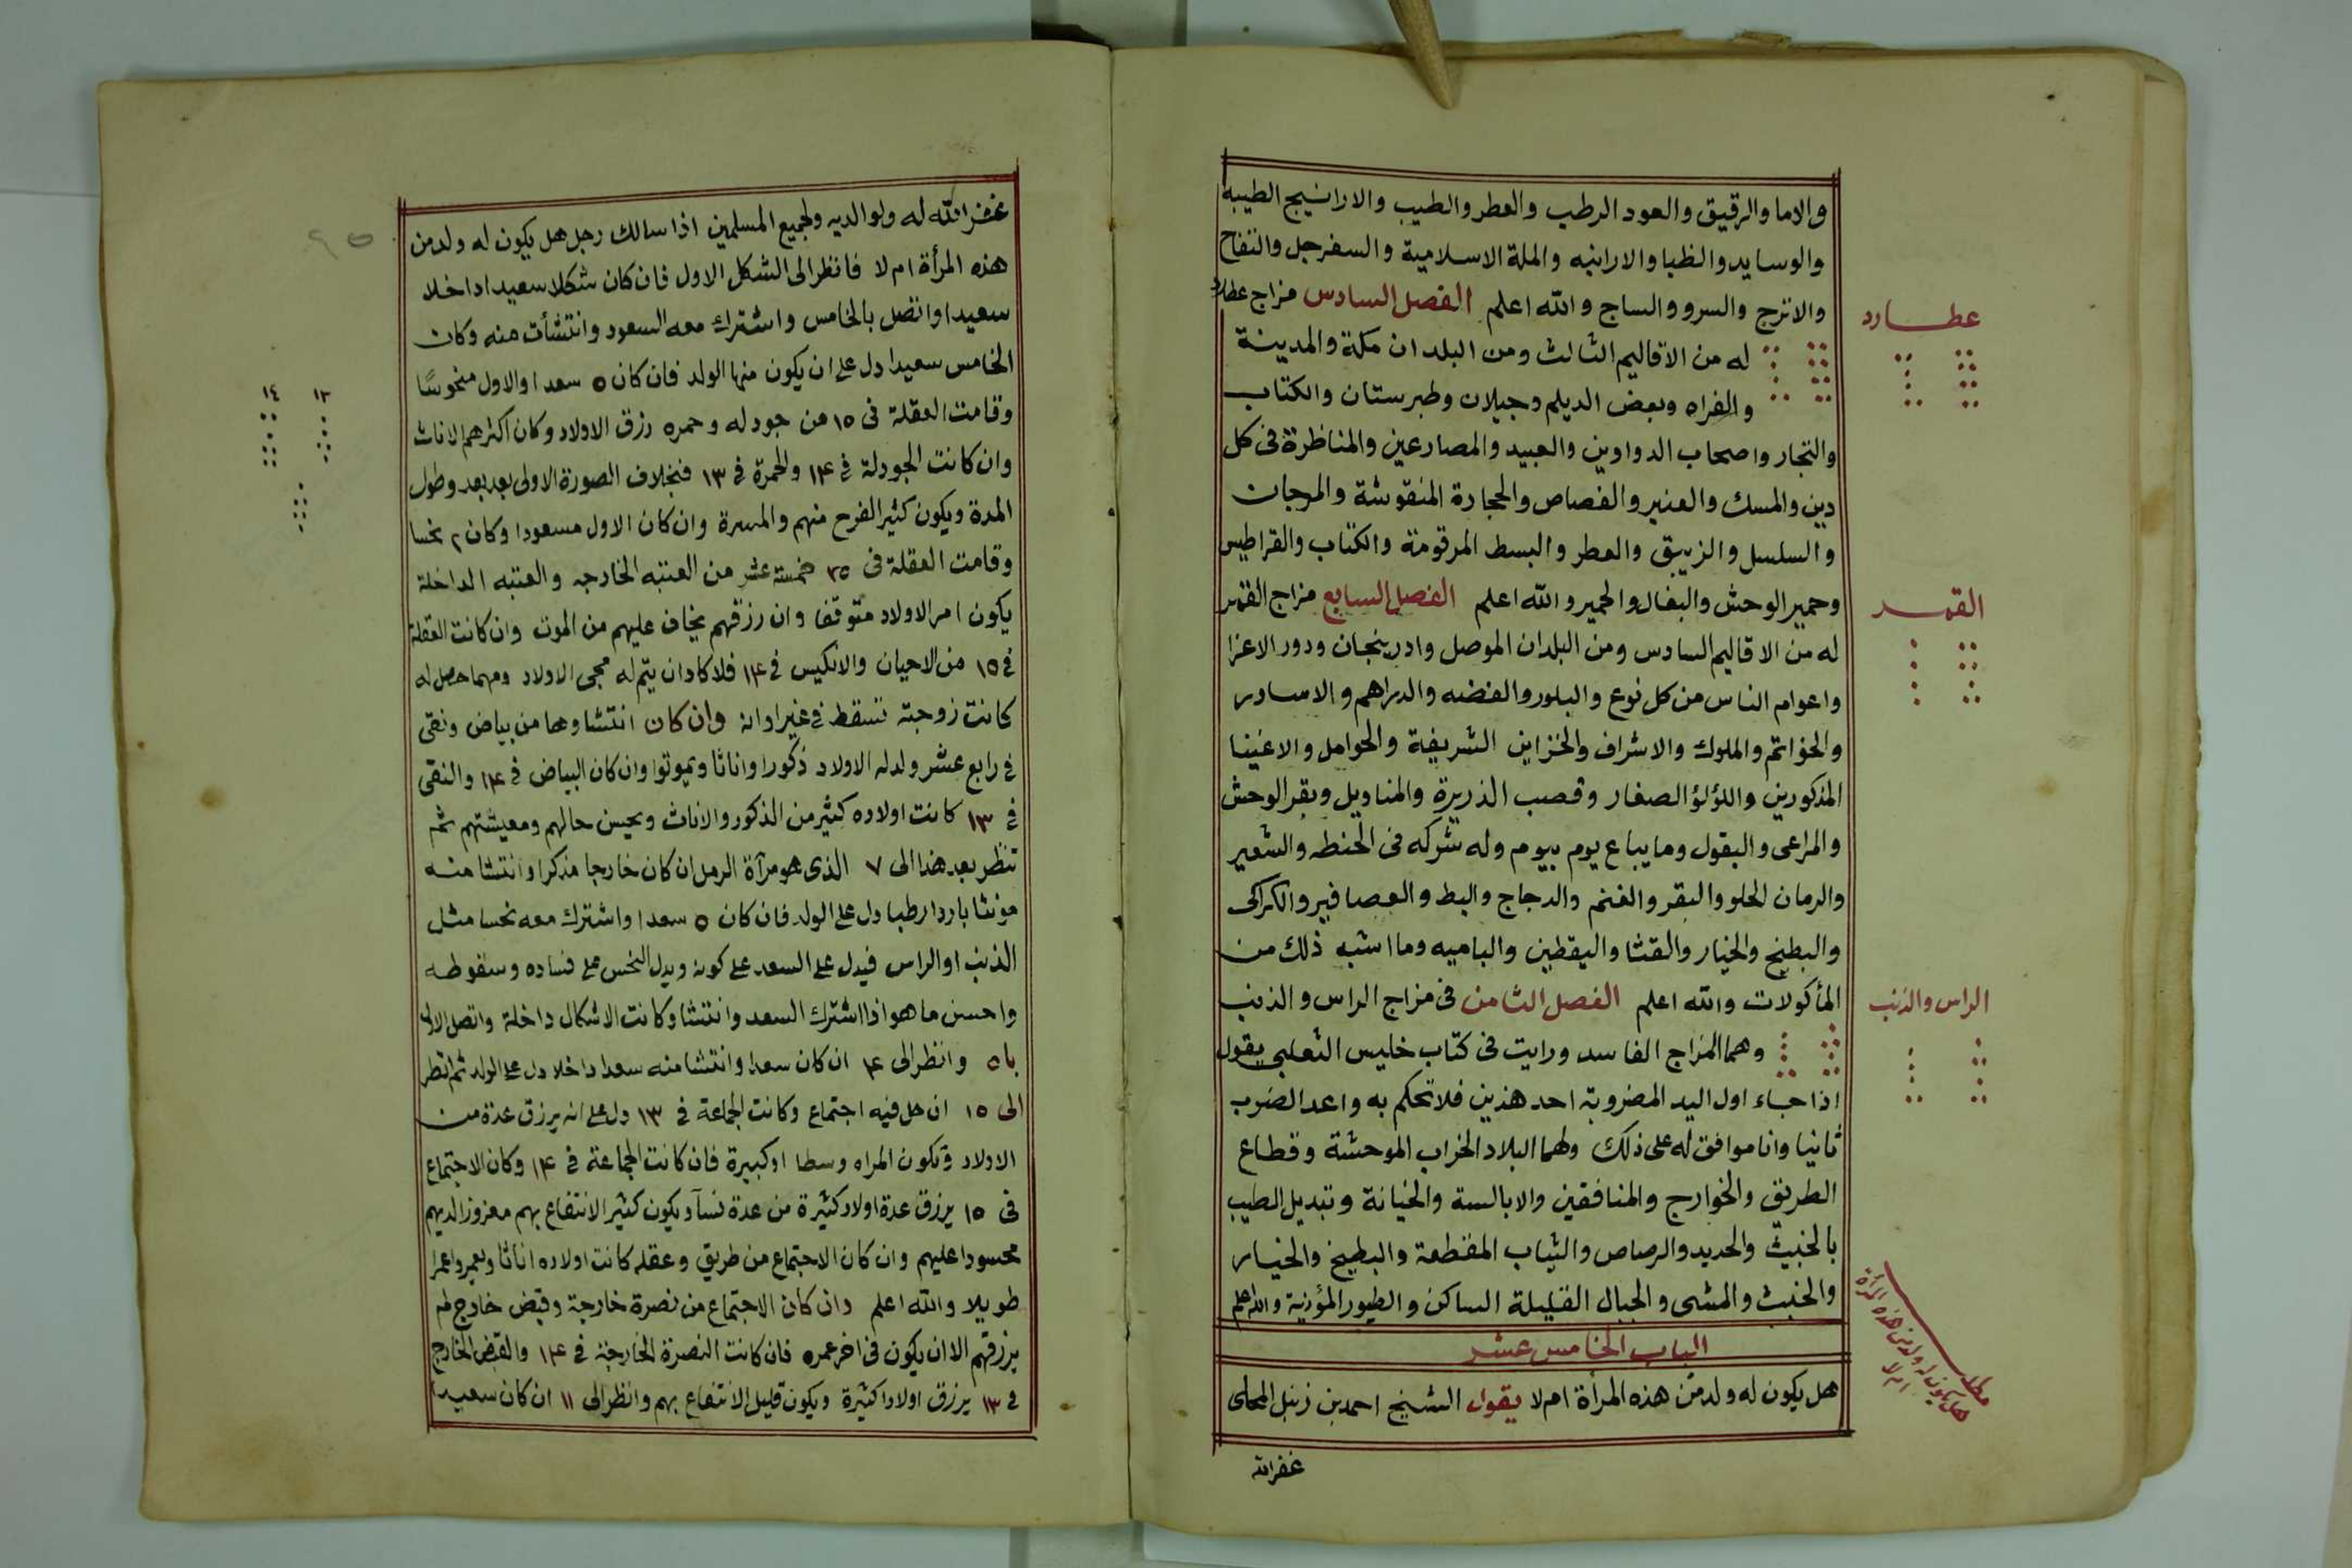 والاما والرقيق والعود الرطب والعطر والطيب والارانيج الطيبه
والوسايد والظبا والارانبه والملة الاسلامية والسفرجل والتفاح
والاترج والسرو والساج والله اعلم الفصل السادس مزاج عطارد
عطارد
له من الاقاليم الثالث ومن البلدان مكة والمدينة
والفراه وبعض الديلم وجيلان وطبرستان والكتاب
والتجار واصحاب الدواوين والعبيد والمصارعين والمناظرة فى كل
دين والمسك والعنبر والفصاص والحجارة المنقوشة والمرجان
والسلسل والزيبق والعطر والبسط المرقومة والكتاب والقراطيس
وحمير الوحش والبغال والحمير والله اعلم الفصل السابع مزاج القمر
القمر
له من الاقاليم السادس ومن البلدان الموصل وادربنجان ودور الاعزا
واعوام الناس من كل نوع والبلور والفضه والدراهم والاساور
والخواتم والملوك والاشراف والخزاين الشريفة والحوامل والاغنيا
المذكورين واللؤلؤ الصغار وقصب الذريرة والمناديل وبقر الوحش
والمراعى والبقول وما يباع يوم بيوم وله شركه فى الحنطه والشعير
والرمان الحلو والبقر والغنم والدجاج والبط والعصافير والكراكى
والبطيخ والخيار والقثا واليقطين والباميه وما اشبه ذلك من
المأكولات والله اعلم الفصل الثامن فى مزاج الراس والذنب
الراس والذنب
وهما المزاج الفاسد ورايت فى كتاب خليس الثعلبى يقول
اذا جاء اول اليد المضروبة احد هذين فلا تحكم به واعد الضرب
ثانيا وانا موافق له على ذلك ولهما البلاد الخراب الموحشة وقطاع
الطريق والخوارج والمنافقين والابالسة والخيانة وتبديل الطيب
بالخبيث والحديد والرصاص والثياب المقطعة والبطيخ والخيار
والخبث والمشى والجبال القليلة الساكن والطيور المؤذية والله اعلم
الباب الخامس عشر
هل يكون له ولد من هذه المرأة ام لا يقول الشيخ احمد بن زنبل المحلى
مطلب
هل يكون له ولد من هذه المرأة
ام لا
غفر الله
غفر الله له ولوالديه ولجميع المسلمين اذا سالك رجل هل يكون له ولد من
هذه المرأة ام لا فانظر الى الشكل الاول فان كان شكلا سعيدا داخلا
سعيدا واتصل بالخامس واشترك معه السعود وانتشأت منه وكان
الخامس سعيدا دل على ان يكون منها الولد فان كان ٥ سعدا والاول منحوسًا
وقامت العقلة فى ١٥ من جودله وحمره رزق الاولاد وكان اكثرهم الاناث
١٣
١٤
وان كانت الجودلة فى ١٤ والحمرة فى ١٣ فبخلاف الصورة الاولى بعد بعد وطول
المدة ويكون كثير الفرح منهم والمسرة وان كان الاول مسعودا وكان ٢ نحسا
وقامت العقلة فى ٢٥ خمسة عشر من العتبه الخارجه والعتبه الداخلة
يكون امر الاولاد متوقفا وان رزقهم يخاف عليهم من الموت وان كانت العقلة
فى ١٥ من الاحيان والانكيس فى ١٤ فلا كادان يتم له مجى الاولاد ومهما حصل له
كانت زوجته تسقط فى غير اوانه وان كان انتشاوهما من بياض ونقى
فى رابع عشر ولد له الاولاد ذكورا واناثا ويموتوا وان كان البياض فى ١٤ والنقى
فى ١٣ كانت اولاده كثير من الذكور والاناث ويحسن حالهم ومعيشتهم ثم
تنظر بعد هذا الى ٧ الذى هو مرآة الرمل ان كان خارجا مذكرا وانتشا منه
مونثا باردا رطبا دل على الولد فان كان ٥ سعدا واشترك معه نحسا مثل
الذنب او الراس فيدل على السعد على كونه ويدل النحس على فساده وسقوطه
واحسن ما هو اذا اشترك السعد وانتشا وكانت الاشكال داخلة واتصل الاول
با ٥ وانظر الى ٤ ان كان سعدا وانتشا منه سعدا داخلا دل على الولد ثم تنظر
الى ١٥ ان حل فيه اجتماع وكانت الجماعة فى ١٣ دل على انه يرزق عدة من
الاولاد وتكون المراه وسطا او كبيرة فان كانت الجماعة فى ١٤ وكان الاجتماع
فى ١٥ يرزق عدة اولاد كثيرة من عدة نسآء ويكون كثير الانتفاع بهم معزوز لديهم
محسودا عليهم وان كان الاجتماع من طريق وعقله كانت اولاده اناثا ويعمروا عمرا
طويلا والله اعلم وان كان الاجتماع من نصرة خارجة وقبض خارج لم
يرزقهم الا ان يكون فى اخر عمره فان كانت النصرة الخارجة فى ١٤ والقبض الخارج
فى ١٣ يرزق اولادا كثيرة ويكون قليل الانتفاع بهم وانظر الى ١١ ان كان سعيدا